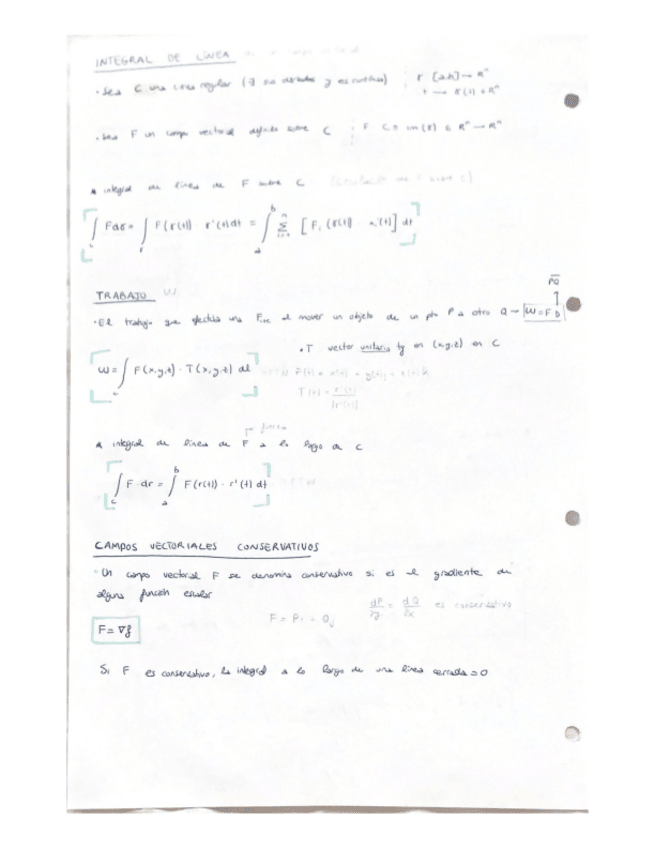 INTEGRAL DE LÍNEA
· Sea C una curva regular (∃ sus derivadas y es continua) r [a,b] → Rⁿ
t → r(t) ∈ Rⁿ
· Sea F un campo vectorial definido sobre C F C = im(r) ⊆ Rⁿ → Rⁿ
integral de línea de F sobre C (circulación de F sobre C)
∫ F dr = ∫ F(r(t)) r'(t) dt = ∫ Σ [Fᵢ (r(t)) · (t)] dt
TRABAJO W
PQ
· El trabajo que efectúa una Fza al mover un objeto de un pto P a otro Q → W = F D
· T vector unitario tg en (x,y,z) en C
W = ∫ F(x,y,z) · T(x,y,z) dl
T(t) = r'(t)
|r'(t)|
integral de línea de F a lo largo de C
∫ F · dr = ∫ F(r(t)) · r'(t) dt
CAMPOS VECTORIALES CONSERVATIVOS
· Un campo vectorial F se denomina conservativo si es el gradiente de
alguna función escalar
dP/dy = dQ/dx es conservativo
F = Pi + Qj
F = ∇f
Si F es conservativo, la integral a lo largo de una línea cerrada = 0